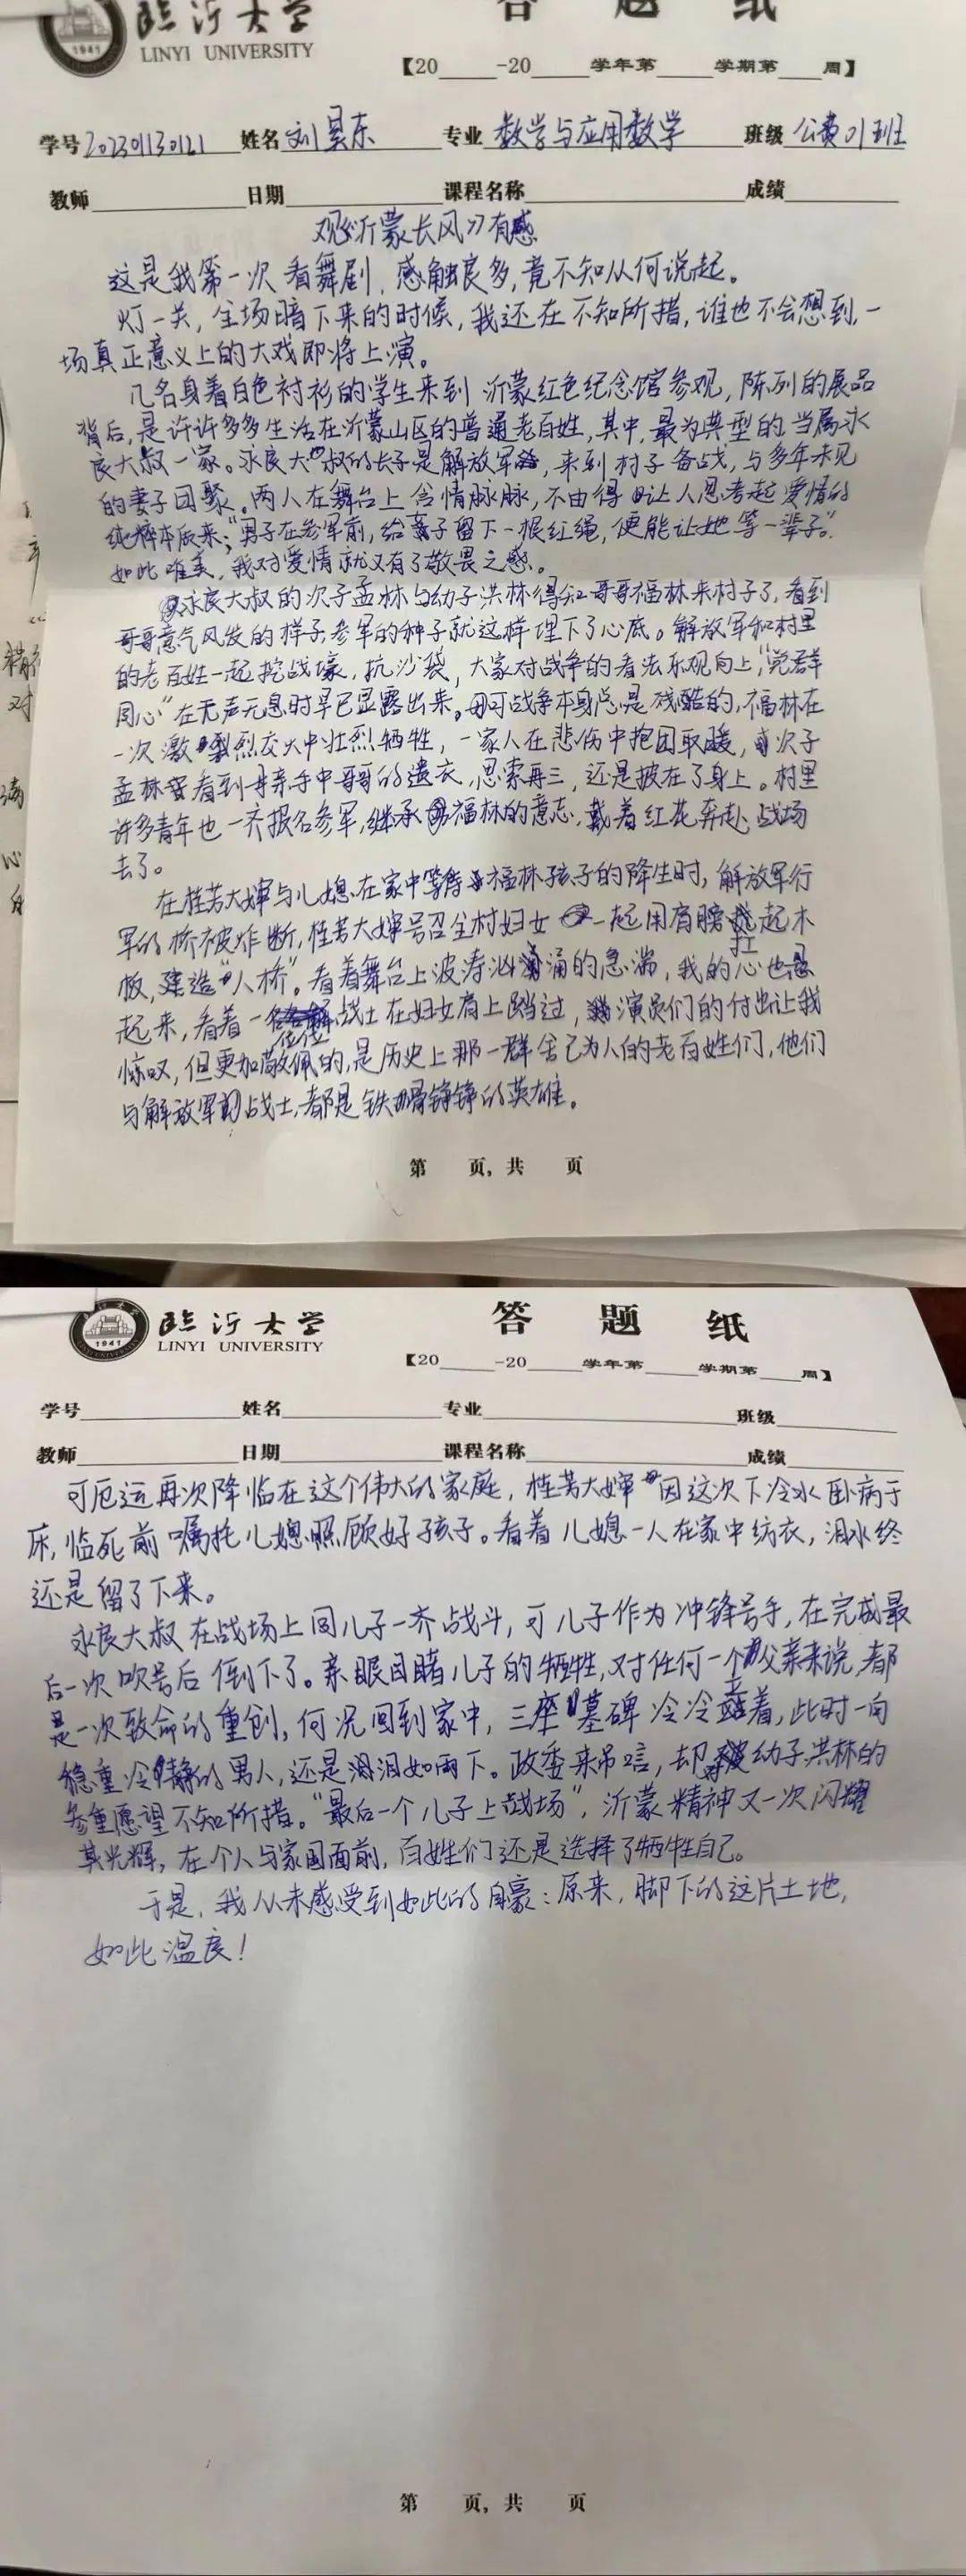 临沂大学
LINYI UNIVERSITY
1941
答 题 纸
【20____-20____学年第____学期第____周】
学号 202301130121 姓名 刘昊东 专业 数学与应用数学 班级 公费01班
教师 日期 课程名称 成绩
观《沂蒙长风》有感
这是我第一次看舞剧，感触良多，竟不知从何说起。
灯一关，全场暗下来的时候，我还在不知所措，谁也不会想到，一
场真正意义上的大戏即将上演。
几名身着白色衬衫的学生来到沂蒙红色纪念馆参观，陈列的展品
背后，是许许多多生活在沂蒙山区的普通老百姓，其中，最为典型的当属永
良大叔一家。永良大叔的长子是解放军，来到村子备战，与多年未见
的妻子团聚。两人在舞台上含情脉脉，不由得让人思考起爱情的
纯粹本质来：“男子在参军前，给妻子留下一根红绳，便能让她等一辈子”。
如此唯美，我对爱情就又有了敬畏之感。
永良大叔的次子孟林与幼子洪林得知哥哥福林来村子了，看到
哥哥意气风发的样子，参军的种子就这样埋下了心底。解放军和村里
的老百姓一起挖战壕，抗沙袋，大家对战争的看法乐观向上，“党群
同心”在无声无息时早已显露出来。可战争本身总是残酷的，福林在
一次激烈交火中壮烈牺牲，一家人在悲伤中抱团取暖，次子
孟林看到母亲手中哥哥的遗衣，思索再三，还是披在了身上。村里
许多青年也一齐报名参军，继承福林的意志，戴着红花奔赴战场
去了。
在桂芳大婶与儿媳在家中等待福林孩子的降生时，解放军行
军的桥被炸断，桂芳大婶号召全村妇女一起用肩膀扛起木
板，建造“人桥”。看着舞台上波涛汹涌的急湍，我的心也悬
起来，看着一位位战士在妇女肩上踏过，演员们的付出让我
惊叹，但更加敬佩的，是历史上那一群舍己为人的老百姓们，他们
与解放军的战士，都是铁骨铮铮的英雄。
第 页，共 页
临沂大学
LINYI UNIVERSITY
1941
答 题 纸
【20____-20____学年第____学期第____周】
学号 姓名 专业 班级
教师 日期 课程名称 成绩
可厄运再次降临在这个伟大的家庭，桂芳大婶因这次下冷水卧病于
床，临死前嘱托儿媳照顾好孩子。看着儿媳一人在家中纺衣，泪水终
还是留了下来。
永良大叔在战场上同儿子一齐战斗，可儿子作为冲锋号手，在完成最
后一次吹号后倒下了。亲眼目睹儿子的牺牲，对任何一个父亲来说，都
是一次致命的重创，何况回到家中，三座墓碑冷冷立着，此时一向
稳重冷静的男人，还是泪如雨下。政委来吊唁，却被幼子洪林的
参军愿望不知所措。“最后一个儿子上战场”，沂蒙精神又一次闪耀
其光辉，在个人与家国面前，百姓们还是选择了牺牲自己。
于是，我从未感受到如此的自豪：原来，脚下的这片土地，
如此温良！
第 页，共 页